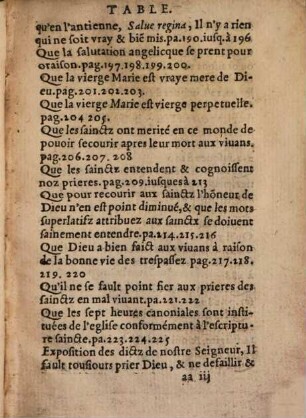 TABLE.
qu'en l'antienne, Salue regina, Il n'y a rien
qui ne soit vray & biē mis.pa.190.iusq.à 196
Que la salutation angelicque se prent pour
oraison.pag.197.198.199.200.
Que la vierge Marie est vraye mere de Di-
eu.pag.201.202.203.
Que la vierge Marie est vierge perpetuelle.
pag.204 205.
Que les sainctz ont merité en ce monde de
pouoir secourir apres leur mort aux viuans.
pag.206.207. 208
Que les sainctz entendent & cognoissent
noz prieres.pag.209.iusques à 213
Que pour recourir aux sainctz l'hōneur de
Dieu n'en est point diminué,& que les mots
superlatifz attribuez aux sainctz se doiuent
sainement entendre.pa.214.215.216
Que Dieu a bien faict aux viuans à raison
de la bonne vie des trespassez pag.217.218.
219. 220
Qu'il ne se fault point fier aux prieres des
sainctz en mal viuant.pa.221.222
Que les sept heures canoniales sont insti-
tuées de l'eglise conformément à l'escriptu-
re saincte.pa.223.224.225
Exposition des dictz de nostre Seigneur, Il
fault tousiours prier Dieu, & ne defaillir &
aa iij